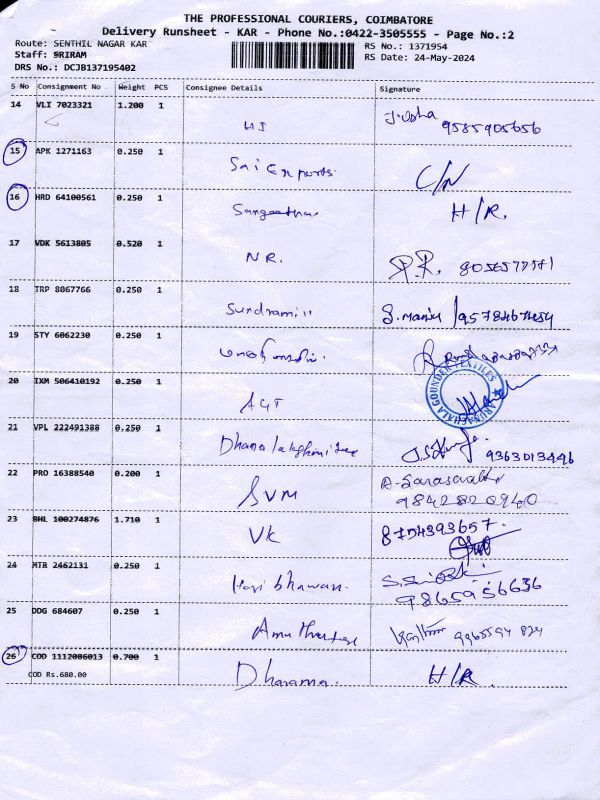 THE PROFESSIONAL COURIERS, COIMBATORE
Delivery Runsheet - KAR - Phone No.:0422-3505555 - Page No.:2
Route: SENTHIL NAGAR KAR
Staff: SRIRAM
DRS No.: DCJB137195402
RS No.: 1371954
RS Date: 24-May-2024
S No Consignment No Weight PCS Consignee Details Signature
14 VLI 7023321 1.200 1 HI J. Usha
9585905656
15 APK 1271163 0.250 1 Sai Exports C/N
16 HRD 64100561 0.250 1 Sangeetha H/R.
17 VDK 5613805 0.520 1 NR.
18 TRP 8067766 0.250 1 S. Manju
19 STY 6062230 0.250 1
20 IXM 506410192 0.250 1 AGT
ARUNACHALA GOUNDER TEXTILES
21 VPL 222491388 0.250 1 9363013446
22 PRO 16388540 0.200 1 SVM
9842820940
23 BHL 100274876 1.710 1 VK 8754393657.
24 MTR 2462131 0.250 1 Hari bhavan.
9865956636
25 DDG 684607 0.250 1
26 COD 1112086013 0.700 1 Dharama. H/R.
COD Rs.680.00